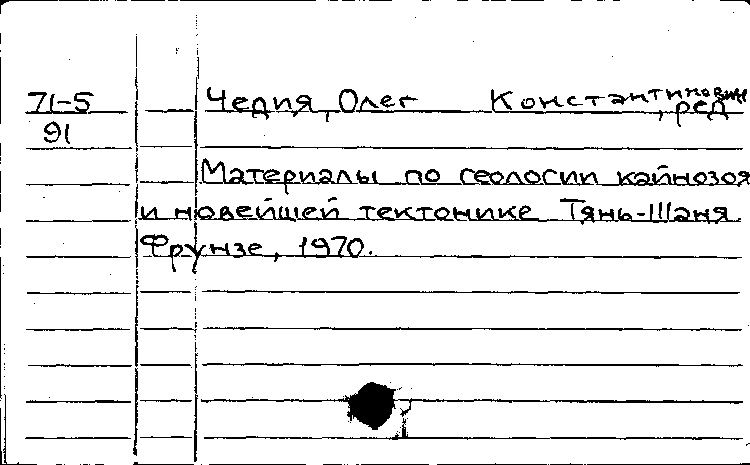 71-5 Чедия, Олег Константинович, ред
91
Материалы по геологии кайнозоя
и новейшей тектонике Тянь-Шаня.
Фрунзе, 1970.